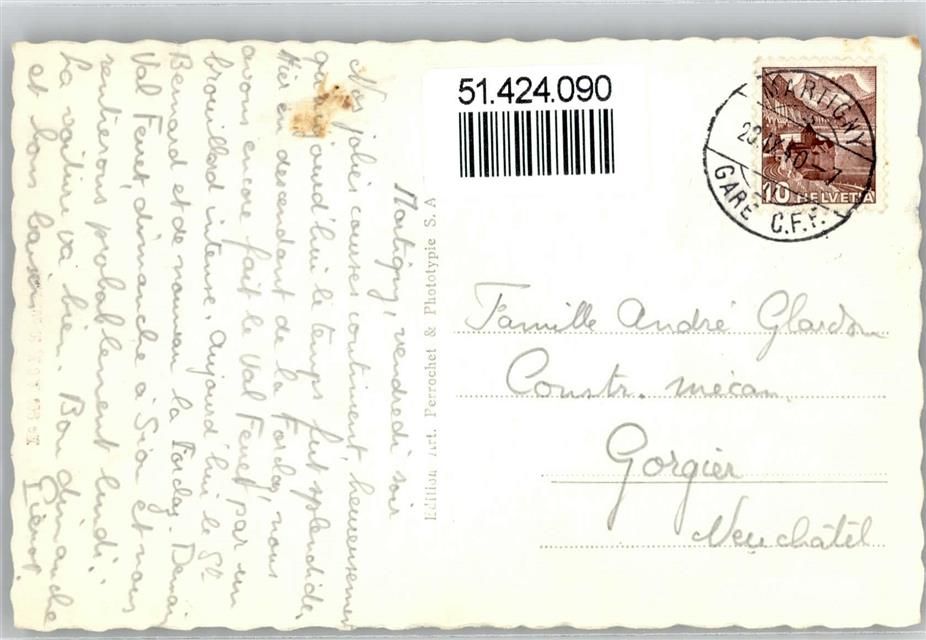 Martigny, vendredi soir
Nos jolies courses continuent, heureusement
qu'aujourd'hui le temps fut splendide.
Hier en descendant de la Forclaz, nous
avons encore fait le Val Ferret, par un
brouillard intense. Aujourd'hui le St
Bernard et de nouveau la Forclaz. Demain
Val Ferret, dimanche à Sion et nous
rentrerons probablement lundi.
La voiture va bien. Bon dimanche
et bons baisers
Pierrot.
Edition Art. Perrochet & Phototypie S.A
51.424.090
MARTIGNY
GARE C.F.F.
10 HELVETIA
Famille André Glardon
Constr. mécan.
Gorgier
Neuchâtel